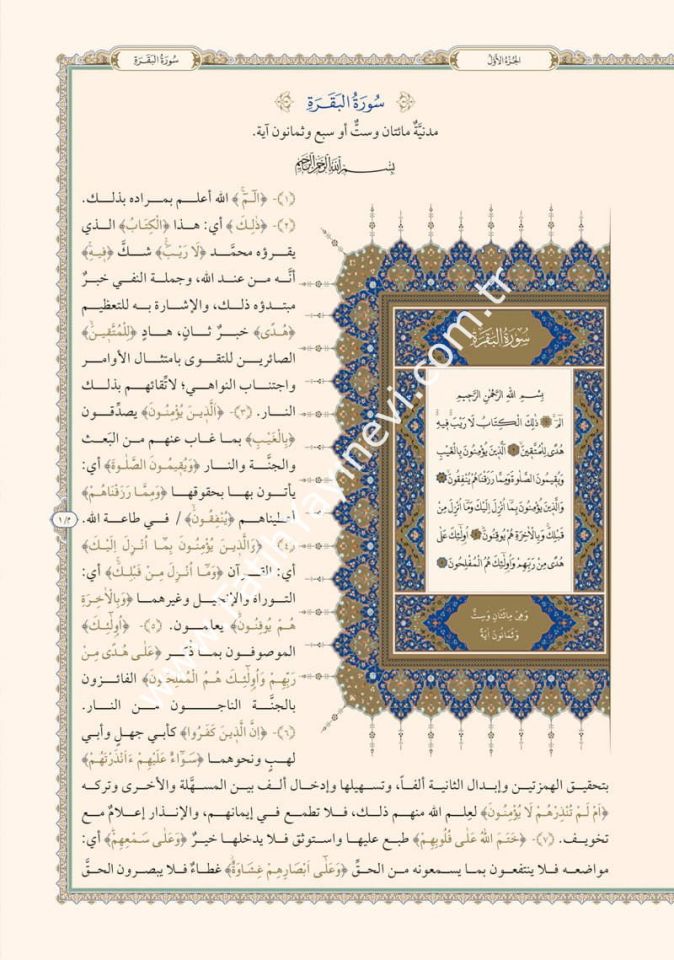 الجزء الأوّل
سورة البقرة
سُورَةُ البَقَرَةِ
مدنيَّةٌ مائتان وستٌّ أو سبع وثمانون آية.
بسم الله الرحمن الرحيم
(١)- ﴿الٓمٓ﴾ الله أعلم بمراده بذلك.
(٢)- ﴿ذٰلِكَ﴾ أي: هذا ﴿الْكِتَابُ﴾ الذي
يقرؤه محمَّد ﴿لَا رَيْبَۚ﴾ شكَّ ﴿فِيهِۚ﴾
أنَّه من عند الله، وجملة النفي خبرٌ
مبتدؤه ذلك، والإشارة به للتعظيم
﴿هُدًى﴾ خبرٌ ثانٍ، هادٍ ﴿لِلْمُتَّقِينَۙ﴾
الصائرين للتقوى بامتثال الأوامر
واجتناب النواهي؛ لاتِّقائهم بذلك
النار. (٣)- ﴿اَلَّذِينَ يُؤْمِنُونَ﴾ يصدِّقون
﴿بِالْغَيْبِ﴾ بما غاب عنهم من البَعث
والجنَّة والنار ﴿وَيُقِيمُونَ الصَّلٰوةَ﴾ أي:
يأتون بها بحقوقها ﴿وَمِمَّا رَزَقْنَاهُمْ﴾
أعطيناهم ﴿يُنْفِقُونَۙ﴾ / في طاعة الله.
[١/٢]
(٤)- ﴿وَالَّذِينَ يُؤْمِنُونَ بِمَٓا اُنْزِلَ اِلَيْكَ﴾
أي: القرآن ﴿وَمَٓا اُنْزِلَ مِنْ قَبْلِكَۚ﴾ أي:
التوراة والإنجيل وغيرهما ﴿وَبِالْاٰخِرَةِ
هُمْ يُوقِنُونَۜ﴾ يعلمون. (٥)- ﴿اُو۬لٰٓئِكَ﴾
الموصوفون بما ذُكر ﴿عَلٰى هُدًى مِنْ
رَبِّهِمْ وَاُو۬لٰٓئِكَ هُمُ الْمُفْلِحُونَ﴾ الفائزون
بالجنَّة الناجون من النار.
(٦)- ﴿اِنَّ الَّذِينَ كَفَرُوا﴾ كأبي جهلٍ وأبي
لهبٍ ونحوهما ﴿سَوَٓاءٌ عَلَيْهِمْ ءَاَنْذَرْتَهُمْ﴾
بتحقيق الهمزتين وإبدال الثانية ألفاً، وتسهيلها وإدخال ألف بين المسهَّلة والأخرى وتركه
﴿اَمْ لَمْ تُنْذِرْهُمْ لَا يُؤْمِنُونَ﴾ لعِلم الله منهم ذلك، فلا تطمع في إيمانهم، والإنذار إعلامٌ مع
تخويف. (٧)- ﴿خَتَمَ اللهُ عَلٰى قُلُوبِهِمْ﴾ طبع عليها واستوثق فلا يدخلها خيرٌ ﴿وَعَلٰى سَمْعِهِمْۜ﴾ أي:
مواضعه فلا ينتفعون بما يسمعونه من الحقِّ ﴿وَعَلٰٓى اَبْصَارِهِمْ غِشَاوَةٌۘ﴾ غطاءٌ فلا يبصرون الحقَّ
سُورَةُ البَقَرَةِ
بِسْمِ اللهِ الرَّحْمٰنِ الرَّحِيمِ
الٓمٓۚ ذٰلِكَ الْكِتَابُ لَا رَيْبَۚ فِيهِۚ
هُدًى لِلْمُتَّقِينَۙ اَلَّذِينَ يُؤْمِنُونَ بِالْغَيْبِ
وَيُقِيمُونَ الصَّلٰوةَ وَمِمَّا رَزَقْنَاهُمْ يُنْفِقُونَۙ
وَالَّذِينَ يُؤْمِنُونَ بِمَٓا اُنْزِلَ اِلَيْكَ وَمَٓا اُنْزِلَ مِنْ
قَبْلِكَۚ وَبِالْاٰخِرَةِ هُمْ يُوقِنُونَۜ اُو۬لٰٓئِكَ عَلٰى
هُدًى مِنْ رَبِّهِمْ وَاُو۬لٰٓئِكَ هُمُ الْمُفْلِحُونَ
وَهِيَ مِائَتَانِ وَسِتٌّ
وَثَمَانُونَ اٰيَةً